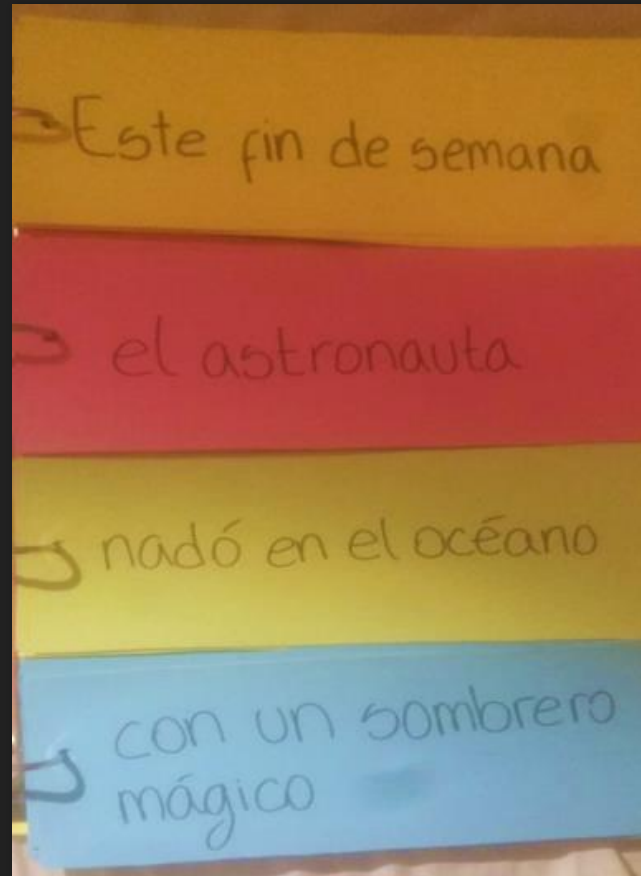 Este fin de semana
el astronauta
nadó en el océano
con un sombrero
mágico